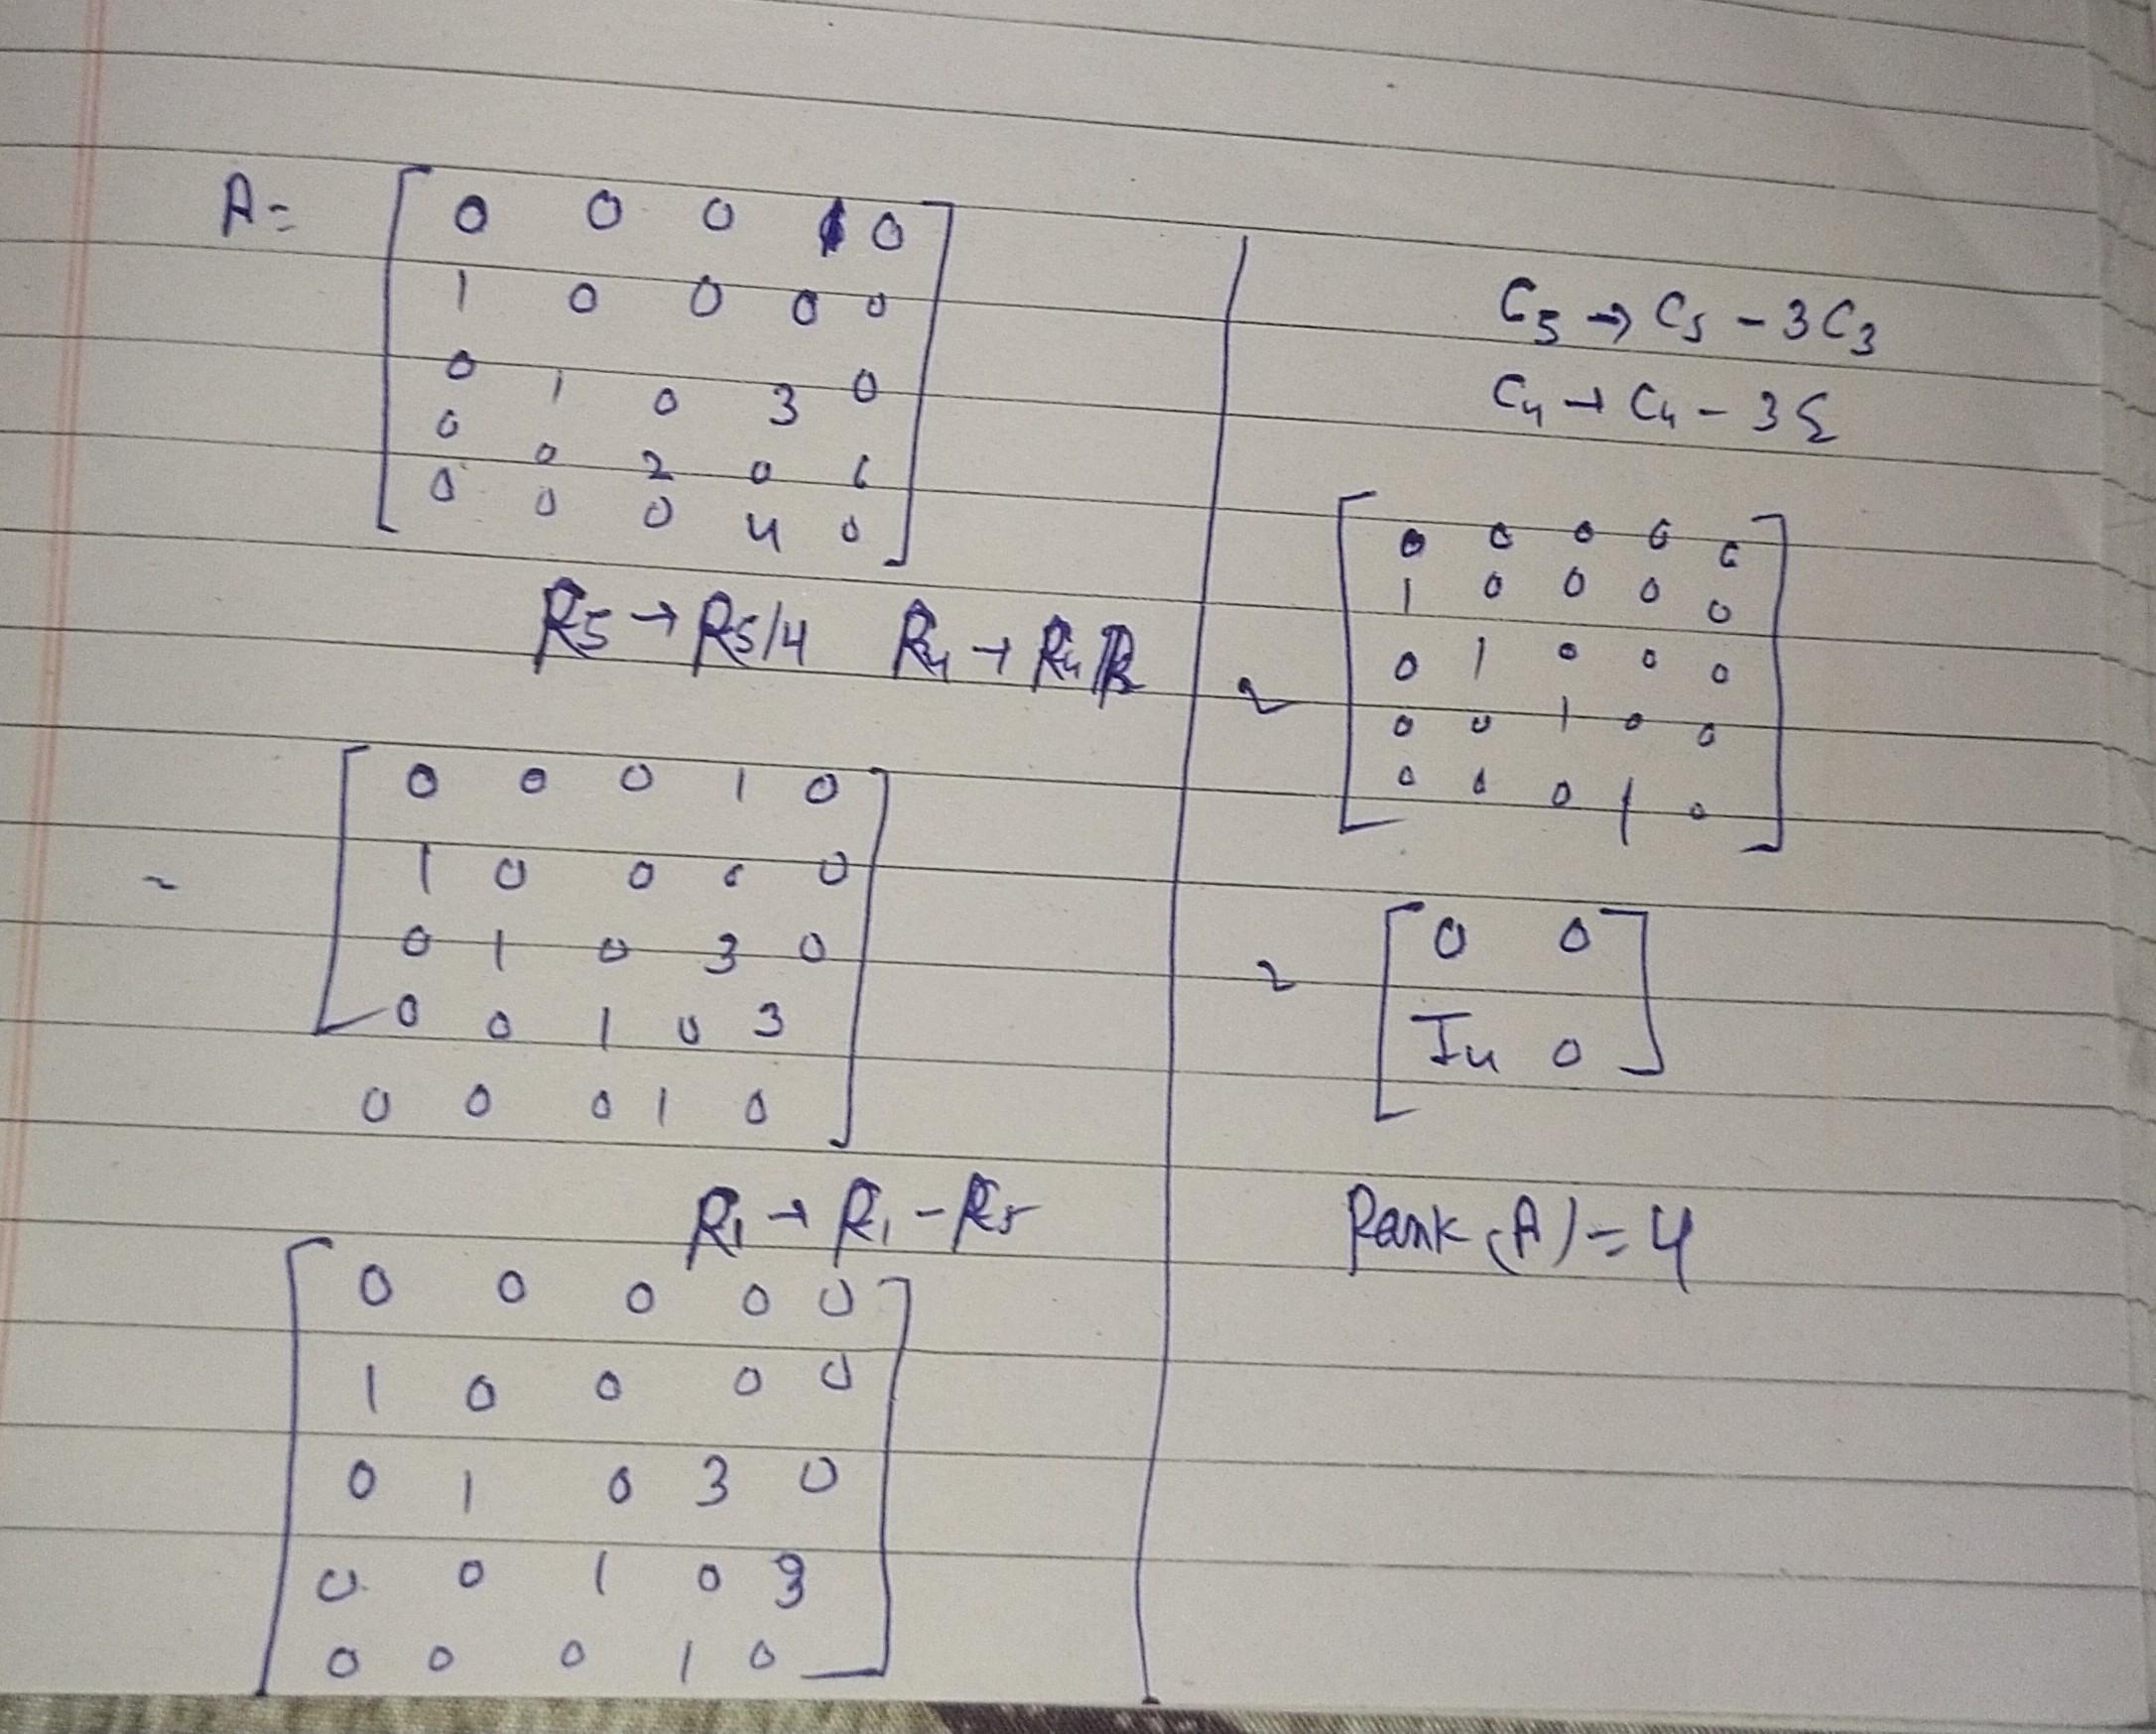 A=
0 0 0 1 0
1 0 0 0 0
0 1 0 3 0
0 0 2 0 6
0 0 0 4 0
R5 → R5/4 R4 → R4/2
~
0 0 0 1 0
1 0 0 0 0
0 1 0 3 0
0 0 1 0 3
0 0 0 1 0
R1 → R1 - R5
0 0 0 0 0
1 0 0 0 0
0 1 0 3 0
0 0 1 0 3
0 0 0 1 0
C5 → C5 - 3C3
C4 → C4 - 3
~
0 0 0 0 0
1 0 0 0 0
0 1 0 0 0
0 0 1 0 0
0 0 0 1 0
~
0 0
I4 0
Rank (A) = 4